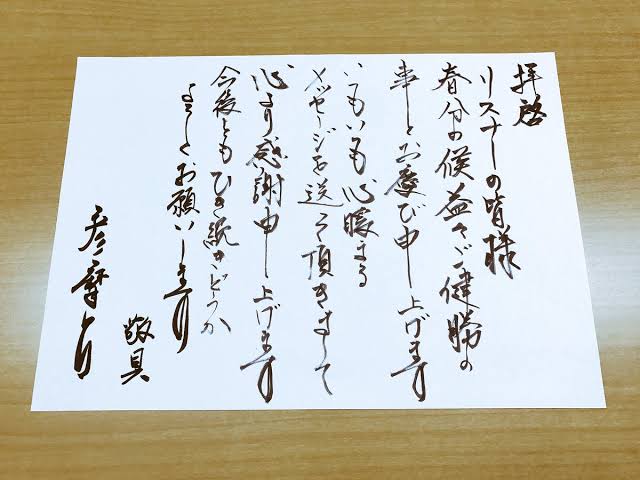 拝啓
リスナーの皆様
春分の候益々ご健勝の
事とお慶び申し上げます
いつもいつも心暖まる
メッセージを送って頂きまして
心より感謝申し上げます
今後ともひき続きどうか
よろしくお願いします
敬具
彦摩より